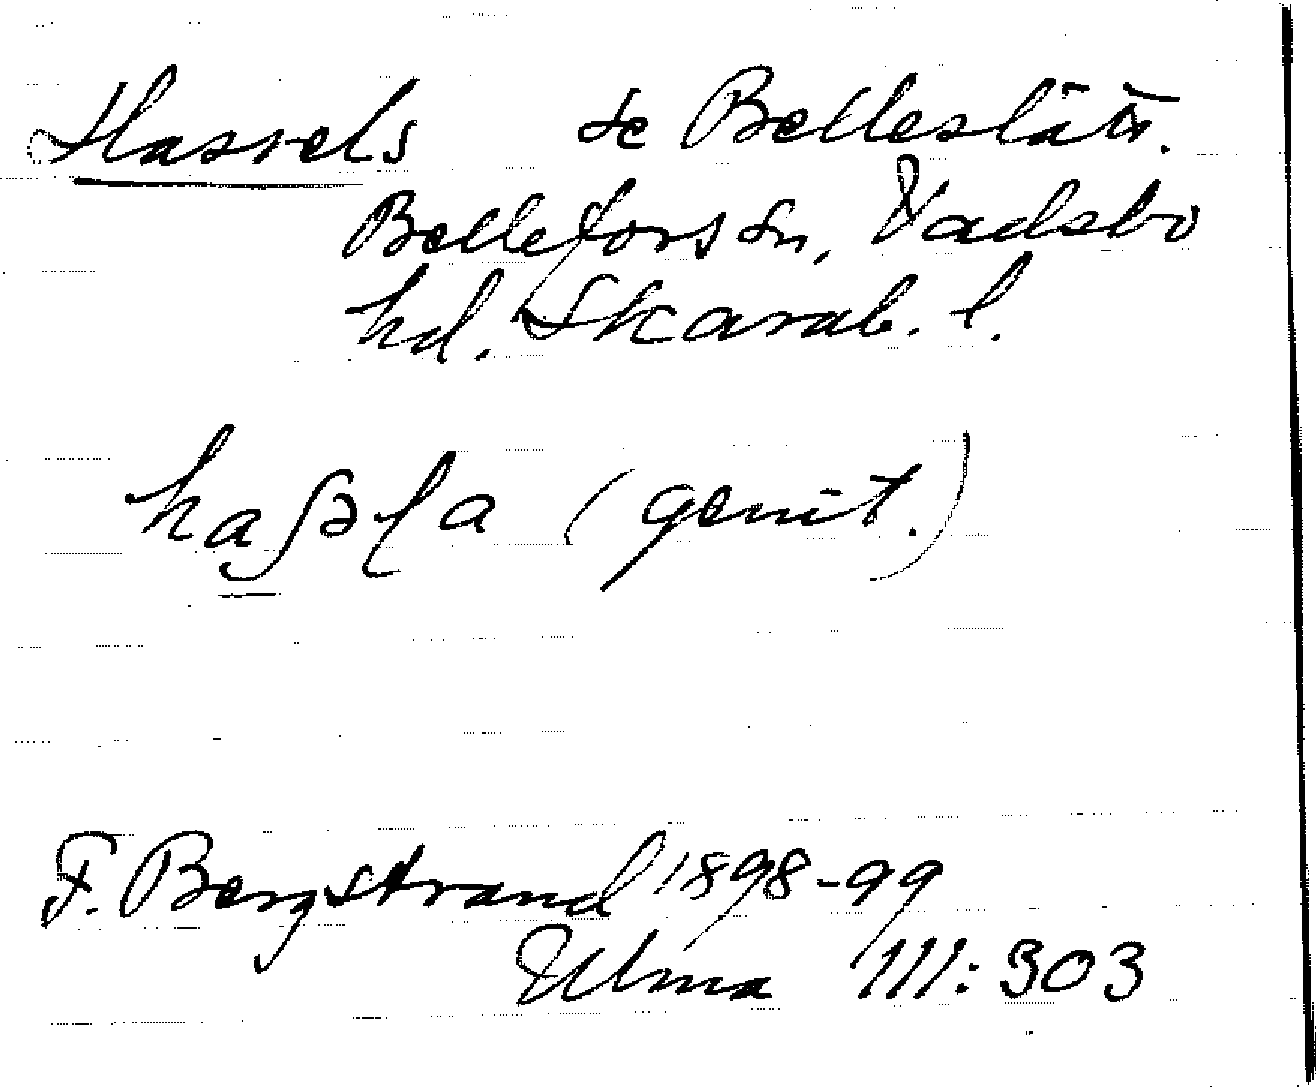 Hassels se Belleslätt.
Bellefors sn, Vadsbo
hd. Skarab. l.
haʃəɭa (genit.)
F. Bergstrand 1898-99
Ulma 111:303